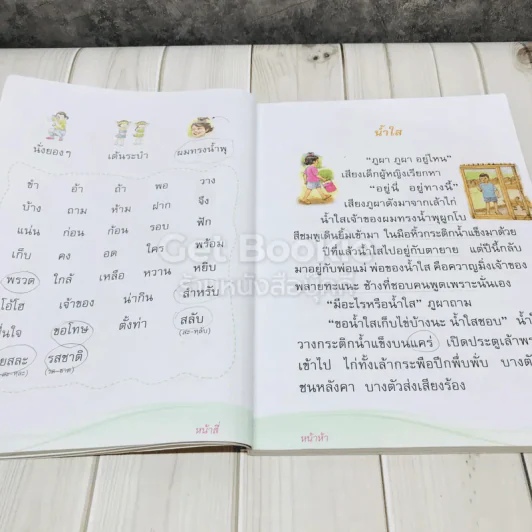 นั่งยองๆ เต้นระบำ ผมทรงน้ำพุ
ขำ อ้า ถ้า พอ วาง
บ้าง ถาม ห้าม ฝาก จึง
แน่น ก่อน ก้อน รอบ ฟัก
เก็บ คง อด ใคร พร้อม
พรวด ใกล้ เหลือ หวาน หยิบ
โอ้โฮ เจ้าของ น่ากิน สำหรับ
ขอโทษ ตั้งท่า สลับ
(สะ-หลับ)
รสชาติ
(รด-ชาด)
หน้าสี่
น้ำใส
"ภูผา ภูผา อยู่ไหน"
เสียงเด็กผู้หญิงเรียกหา
"อยู่นี่ อยู่ทางนี้"
เสียงภูผาดังมาจากเล้าไก่
น้ำใสเจ้าของผมทรงน้ำพุผูกโบ
สีชมพูเดินยิ้มเข้ามา ในมือหิ้วกระติกน้ำแข็งมาด้วย
ปีที่แล้วน้ำใสไปอยู่กับตายาย แต่ปีนี้กลับ
มาอยู่กับพ่อแม่ พ่อของน้ำใส คือควาญมิ่งเจ้าของ
พลายทะแนะ ช้างที่ชอบคนพูดเพราะนั่นเอง
"มีอะไรหรือน้ำใส" ภูผาถาม
"ขอน้ำใสเก็บไข่บ้างนะ น้ำใสชอบ"
วางกระติกน้ำแข็งบนแคร่ เปิดประตูเล้า
เข้าไป ไก่ทั้งเล้ากระพือปีกพึ่บพั่บ
ชนหลังคา บางตัวส่งเสียงร้อง
หน้าห้า
Get Bookie